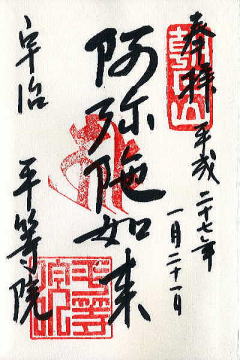 奉拝 平成二十七年
一月二十一日
阿弥陀如来
宇治 平等院
朝日山
平等院印